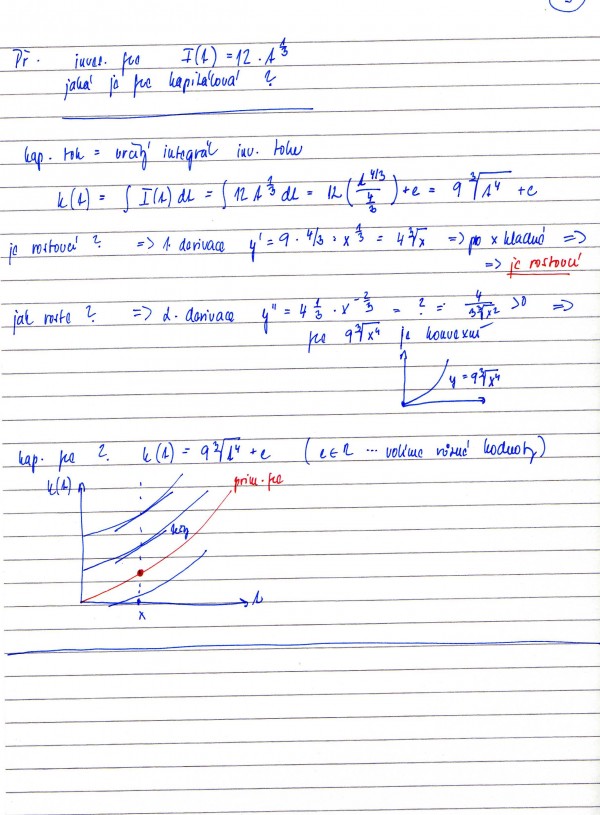 Př. inves. fce I(t) = 12 . t^{1/3}
jaká je fce kapitálová ?
kap. tok = určitý integrál inv. toku
k(t) = ∫ I(t) dt = ∫ 12 t^{1/3} dt = 12 (t^{4/3} / (4/3)) + c = 9 ∛t⁴ + c
je rostoucí ? => 1. derivace y' = 9 . 4/3 . x^{1/3} = 4 ∛x => pro x kladné =>
=> je rostoucí
jak roste ? => 2. derivace y'' = 4 1/3 . x^{-2/3} = ? = 4 / 3∛x² > 0 =>
fce 9∛x⁴ je konvexní
y = 9∛x⁴
kap. fce ? k(t) = 9∛t⁴ + c (c ∈ R ... volíme různé hodnoty)
k(t)
prim. fce
t
x